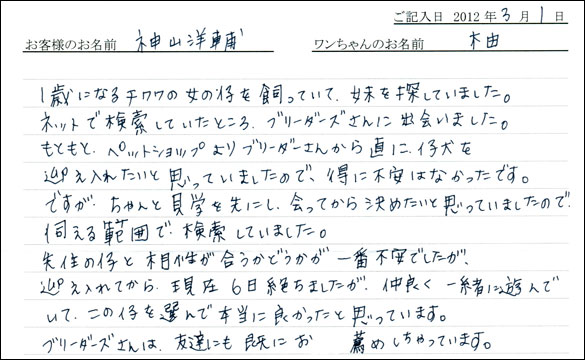 ご記入日 2012年3月1日
お客様のお名前 神山洋輔 ワンちゃんのお名前 柚
1歳になるチワワの女の仔を飼っていて、妹を探していました。
ネットで検索していたところ、ブリーダーズさんに出会いました。
もともと、ペットショップよりブリーダーさんから直に、仔犬を
迎え入れたいと思っていましたので、得に不安はなかったです。
ですが、ちゃんと見学を先にし、会ってから決めたいと思っていましたので
伺える範囲で、検索していました。
先住の仔と相性が合うかどうかが一番不安でしたが、
迎え入れてから、現在6日経ちましたが、仲良く一緒に遊んで
いて、この仔を選んで本当に良かったと思っています。
ブリーダーズさんは、友達にも既にお薦めしちゃっています。